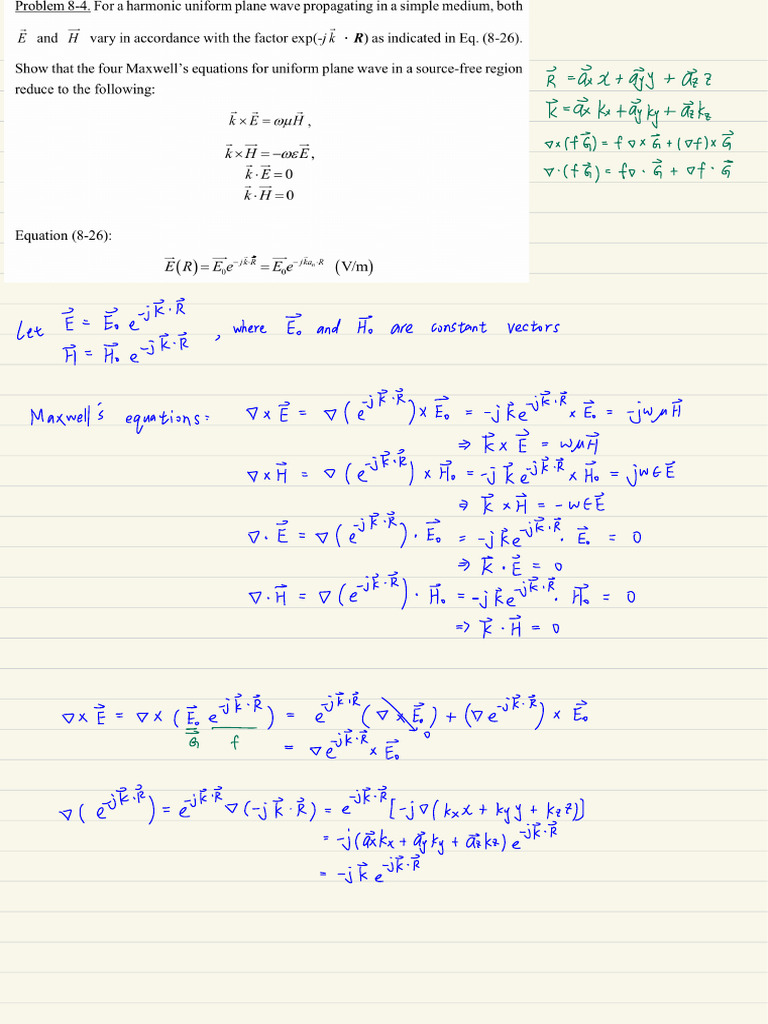 Problem 8-4. For a harmonic uniform plane wave propagating in a simple medium, both
E⃗ and H⃗ vary in accordance with the factor exp(-jk⃗ · R) as indicated in Eq. (8-26).
Show that the four Maxwell's equations for uniform plane wave in a source-free region
reduce to the following:
k⃗ × E⃗ = ωμH⃗ ,
k⃗ × H⃗ = −ωεE⃗ ,
k⃗ · E⃗ = 0
k⃗ · H⃗ = 0
Equation (8-26):
E⃗(R) = E⃗₀e^(−jk⃗·R⃗) = E⃗₀e^(−jka_n·R) (V/m)
R⃗ = a⃗x x + a⃗y y + a⃗z z
k⃗ = a⃗x kx + a⃗y ky + a⃗z kz
∇×(fG⃗) = f∇×G⃗ + (∇f)×G⃗
∇·(fG⃗) = f∇·G⃗ + ∇f·G⃗
Let E⃗ = E⃗₀ e^(-jk⃗·R⃗)
H⃗ = H⃗₀ e^(-jk⃗·R⃗) , where E⃗₀ and H⃗₀ are constant vectors
Maxwell's equations: ∇×E⃗ = ∇(e^(-jk⃗·R⃗))×E⃗₀ = -jk⃗e^(-jk⃗·R⃗)×E⃗₀ = -jωμH⃗
⇒ k⃗×E⃗ = ωμH⃗
∇×H⃗ = ∇(e^(-jk⃗·R⃗))×H⃗₀ = -jk⃗e^(-jk⃗·R⃗)×H⃗₀ = jωεE⃗
⇒ k⃗×H⃗ = -ωεE⃗
∇·E⃗ = ∇(e^(-jk⃗·R⃗))·E⃗₀ = -jk⃗e^(-jk⃗·R⃗)·E⃗₀ = 0
⇒ k⃗·E⃗ = 0
∇·H⃗ = ∇(e^(-jk⃗·R⃗))·H⃗₀ = -jk⃗e^(-jk⃗·R⃗)·H⃗₀ = 0
=> k⃗·H⃗ = 0
∇×E⃗ = ∇×(E⃗₀ e^(-jk⃗·R⃗)) = e^(-jk⃗·R⃗)(∇×E⃗₀) + (∇e^(-jk⃗·R⃗))×E⃗₀
G⃗ f 0
= ∇e^(-jk⃗·R⃗)×E⃗₀
∇(e^(-jk⃗·R⃗)) = e^(-jk⃗·R⃗)∇(-jk⃗·R⃗) = e^(-jk⃗·R⃗)[-j∇(kx x + ky y + kz z)]
= -j(a⃗x kx + a⃗y ky + a⃗z kz)e^(-jk⃗·R⃗)
= -jk⃗ e^(-jk⃗·R⃗)